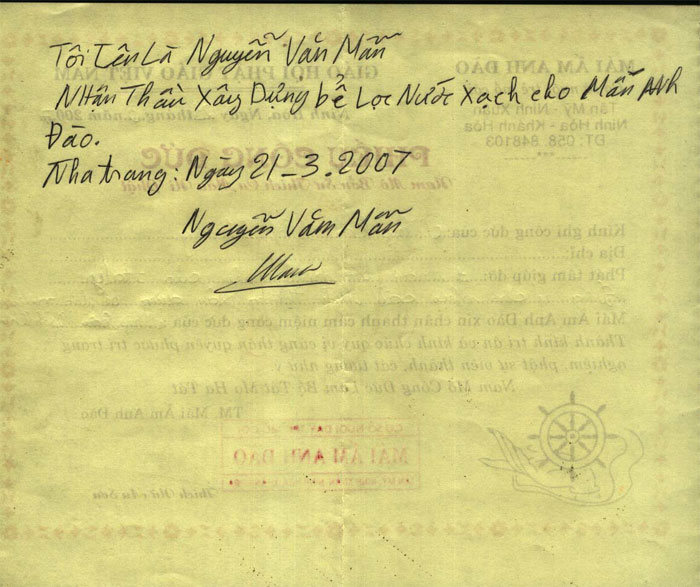 Tôi Tên Là Nguyễn Văn Mẫn
Nhân Thầu Xây Dựng bể Lọc Nước Xạch cho Mấn ANh
Đào.
Nha trang: Ngày 21-3.2007
Nguyễn Văn Mẫn
MÁI ẤM ANH ĐÀO
Tân Mỹ - Ninh Xuân
Ninh Hòa - Khánh Hòa
ĐT: 058. 848103
GIÁO HỘI PHẬT GIÁO VIỆT NAM
PHIẾU CÔNG ĐỨC
Kính ghi công đức của:
Địa chỉ:
Phát tâm giúp đỡ:
Mái Ấm Anh Đào xin chân thành cảm niệm công đức của
Thành kính tri ân và kính chúc quý vị cùng thân quyến phước trí trang
nghiêm, phật sự viên thành, cát tường như ý
Nam Mô Công Đức Lâm Bồ Tát Ma Ha Tát
TM. Mái Ấm Anh Đào
MÁI ẤM ANH ĐÀO